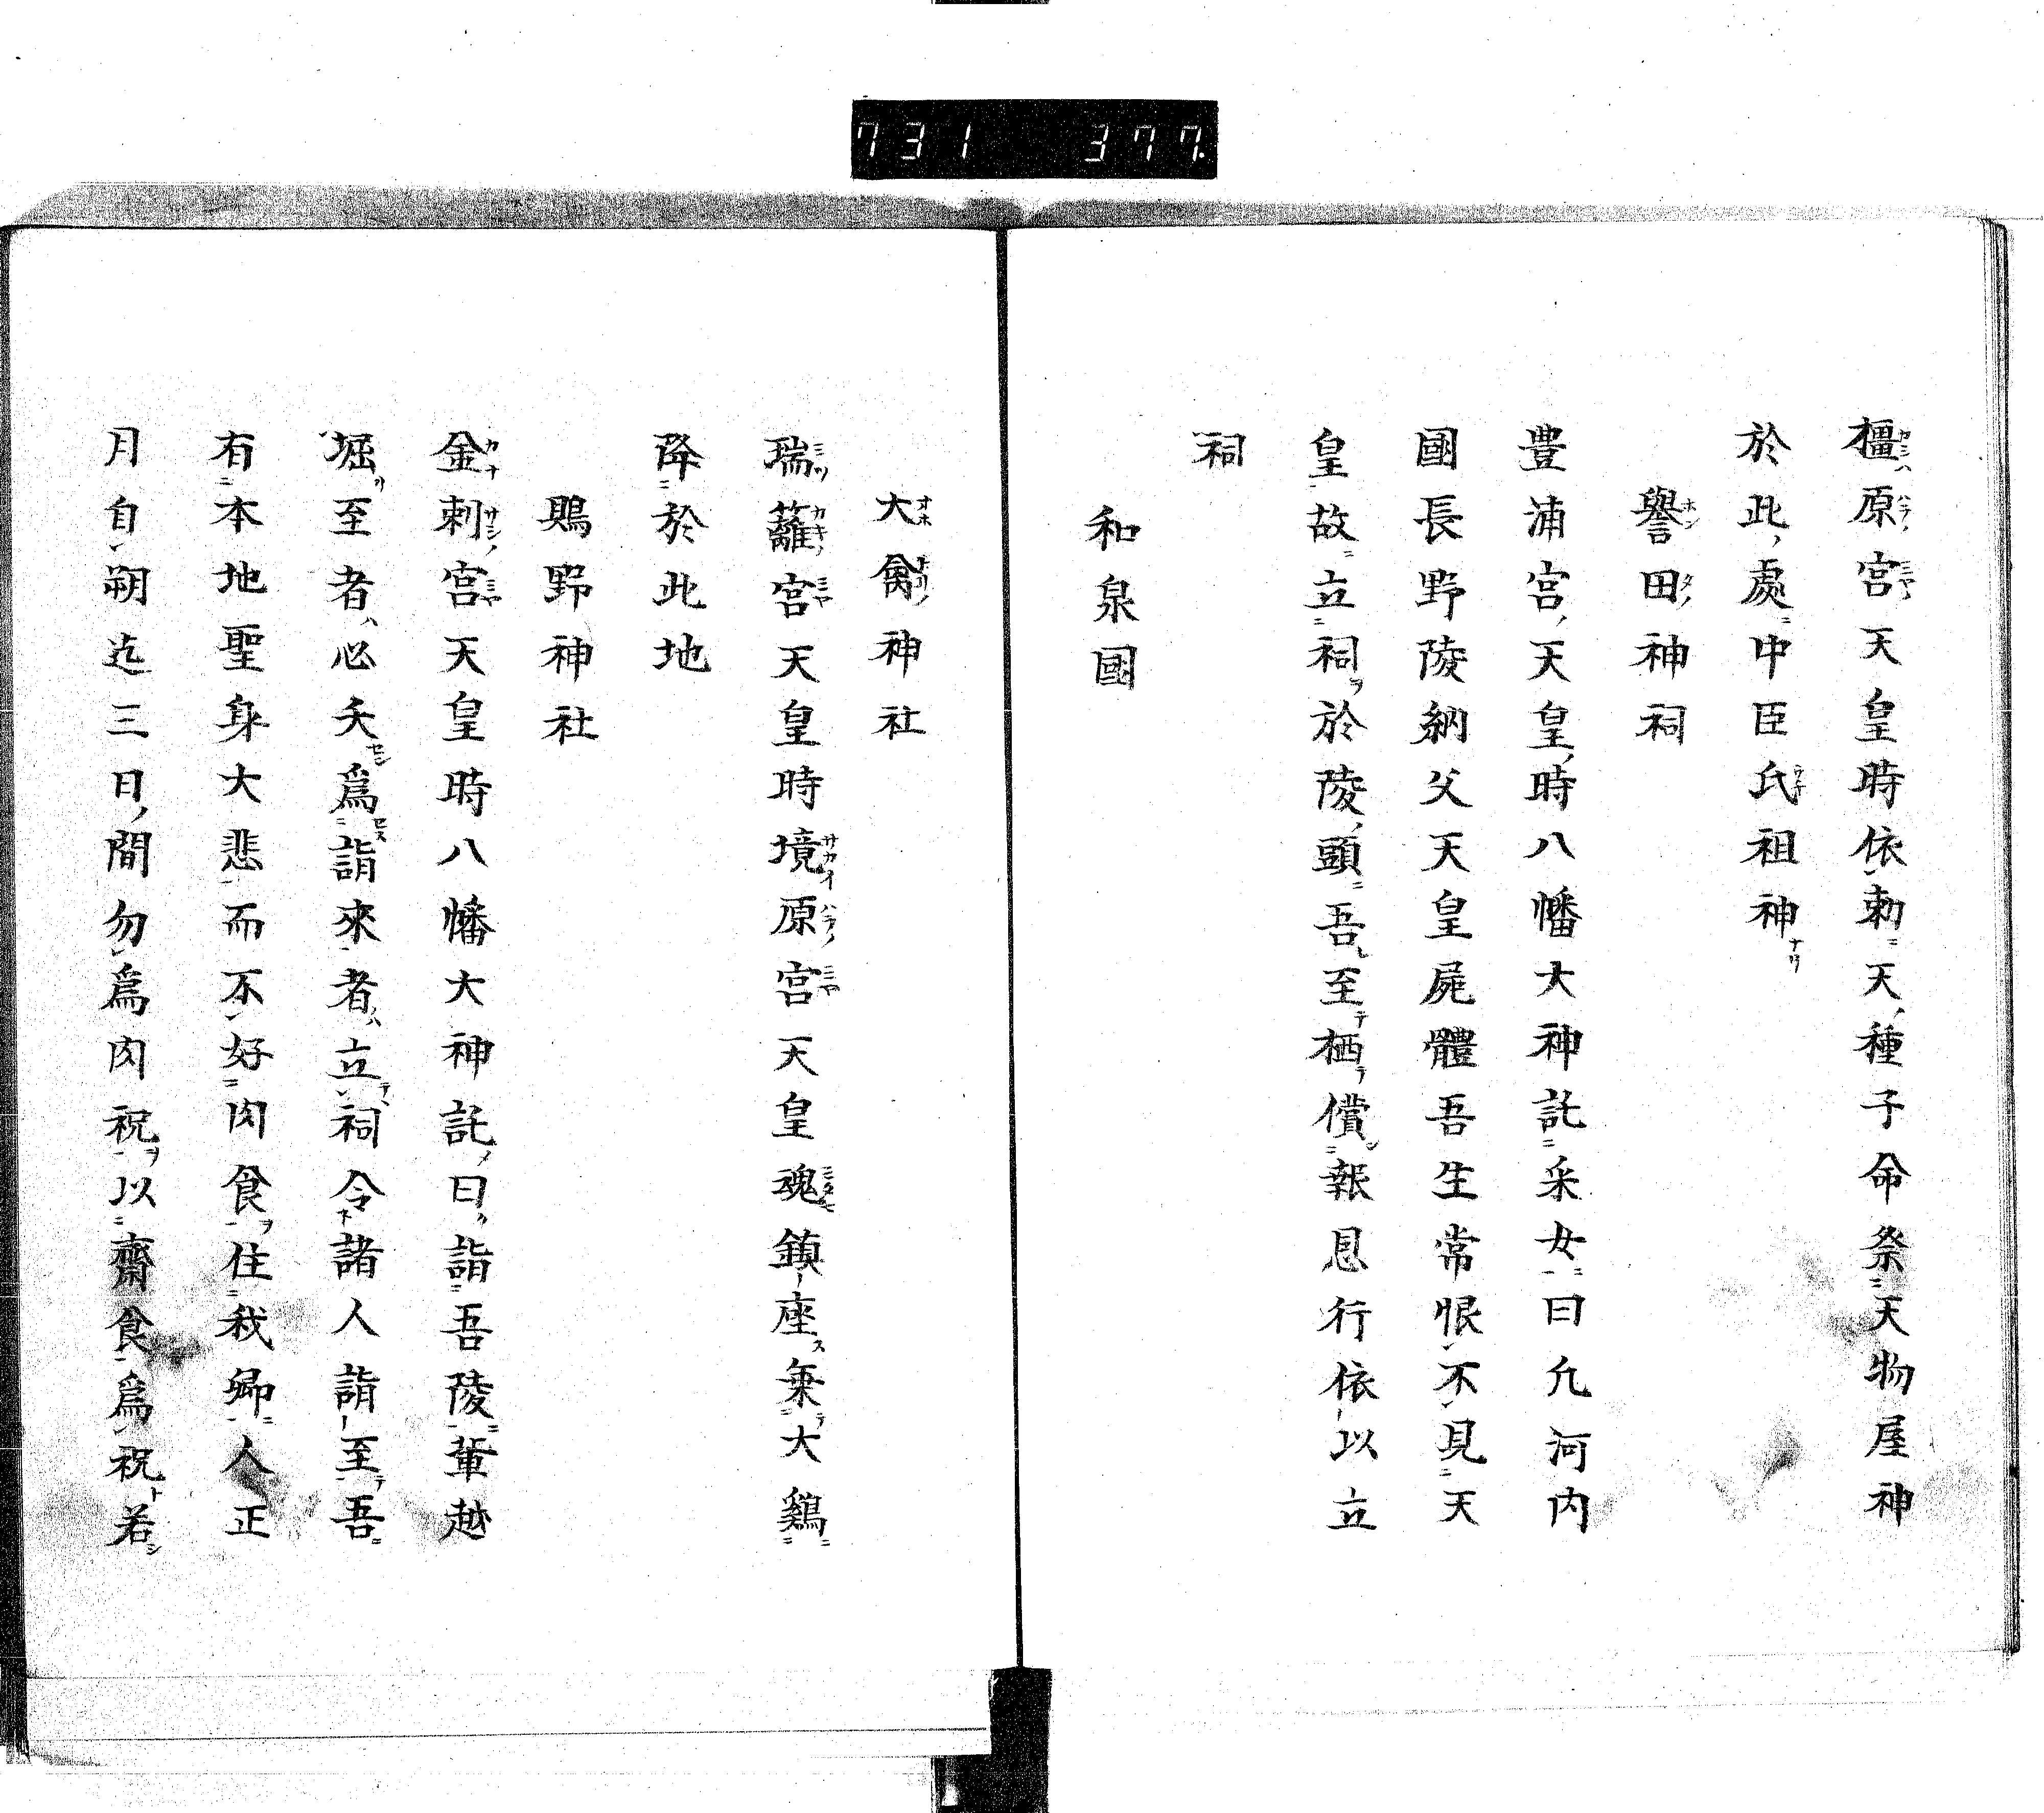 731 377
橿原宮天皇時依勅天種子命祭天物屋神
於此處中臣氏祖神
譽田神祠
豊浦宮天皇時八幡大神託采女曰允河内
國長野陵納父天皇屍體吾生常恨不見天
皇故立祠於陵頭吾至栖償報恩行依以立
祠
和泉國
大禽神社
瑞籬宮天皇時境原宮天皇魂鎮座乗大鷄
降於此地
鵙野神社
金刺宮天皇時八幡大神託曰詣吾陵輩越
堀至者必夭爲詣來者立祠令諸人詣至吾
有本地聖身大悲而不好肉食住我郷人正
月自朔迄三日間勿爲肉祝以齋食爲祝若